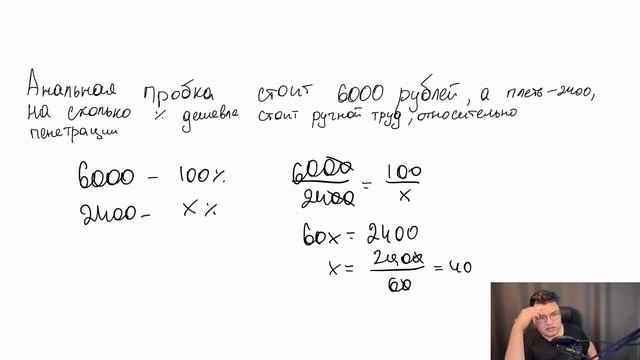 Анальная пробка стоит 6000 рублей, а плеть-2400,
на сколько % дешевле стоит ручной труд, относительно
пенетрации
6000 - 100%
2400 - x%
6000/2400 = 100/x
60x = 2400
x = 2400/60 = 40